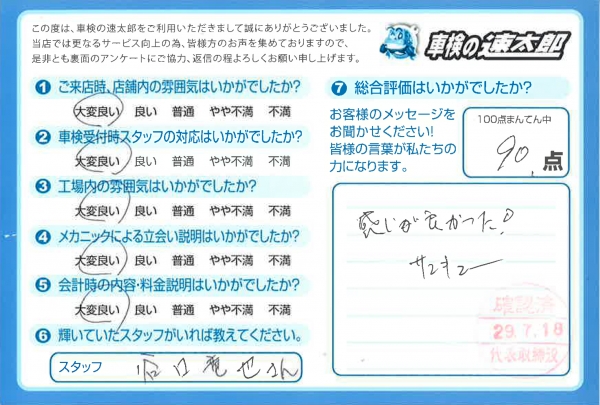 この度は、車検の速太郎をご利用いただきまして誠にありがとうございました。
当店では更なるサービス向上の為、皆様方のお声を集めておりますので、
是非とも裏面のアンケートにご協力、返信の程よろしくお願い申し上げます。
車検の速太郎
1 ご来店時、店舗内の雰囲気はいかがでしたか?
大変良い 良い 普通 やや不満 不満
2 車検受付時スタッフの対応はいかがでしたか?
大変良い 良い 普通 やや不満 不満
3 工場内の雰囲気はいかがでしたか?
大変良い 良い 普通 やや不満 不満
4 メカニックによる立会い説明はいかがでしたか?
大変良い 良い 普通 やや不満 不満
5 会計時の内容・料金説明はいかがでしたか?
大変良い 良い 普通 やや不満 不満
6 輝いていたスタッフがいれば教えてください。
スタッフ 谷口竜也さん
7 総合評価はいかがでしたか?
お客様のメッセージを
お聞かせください!
皆様の言葉が私たちの
力になります。
100点まんてん中
90点
感じが良かった!
サンキュー
確認済
29.7.18
代表取締役